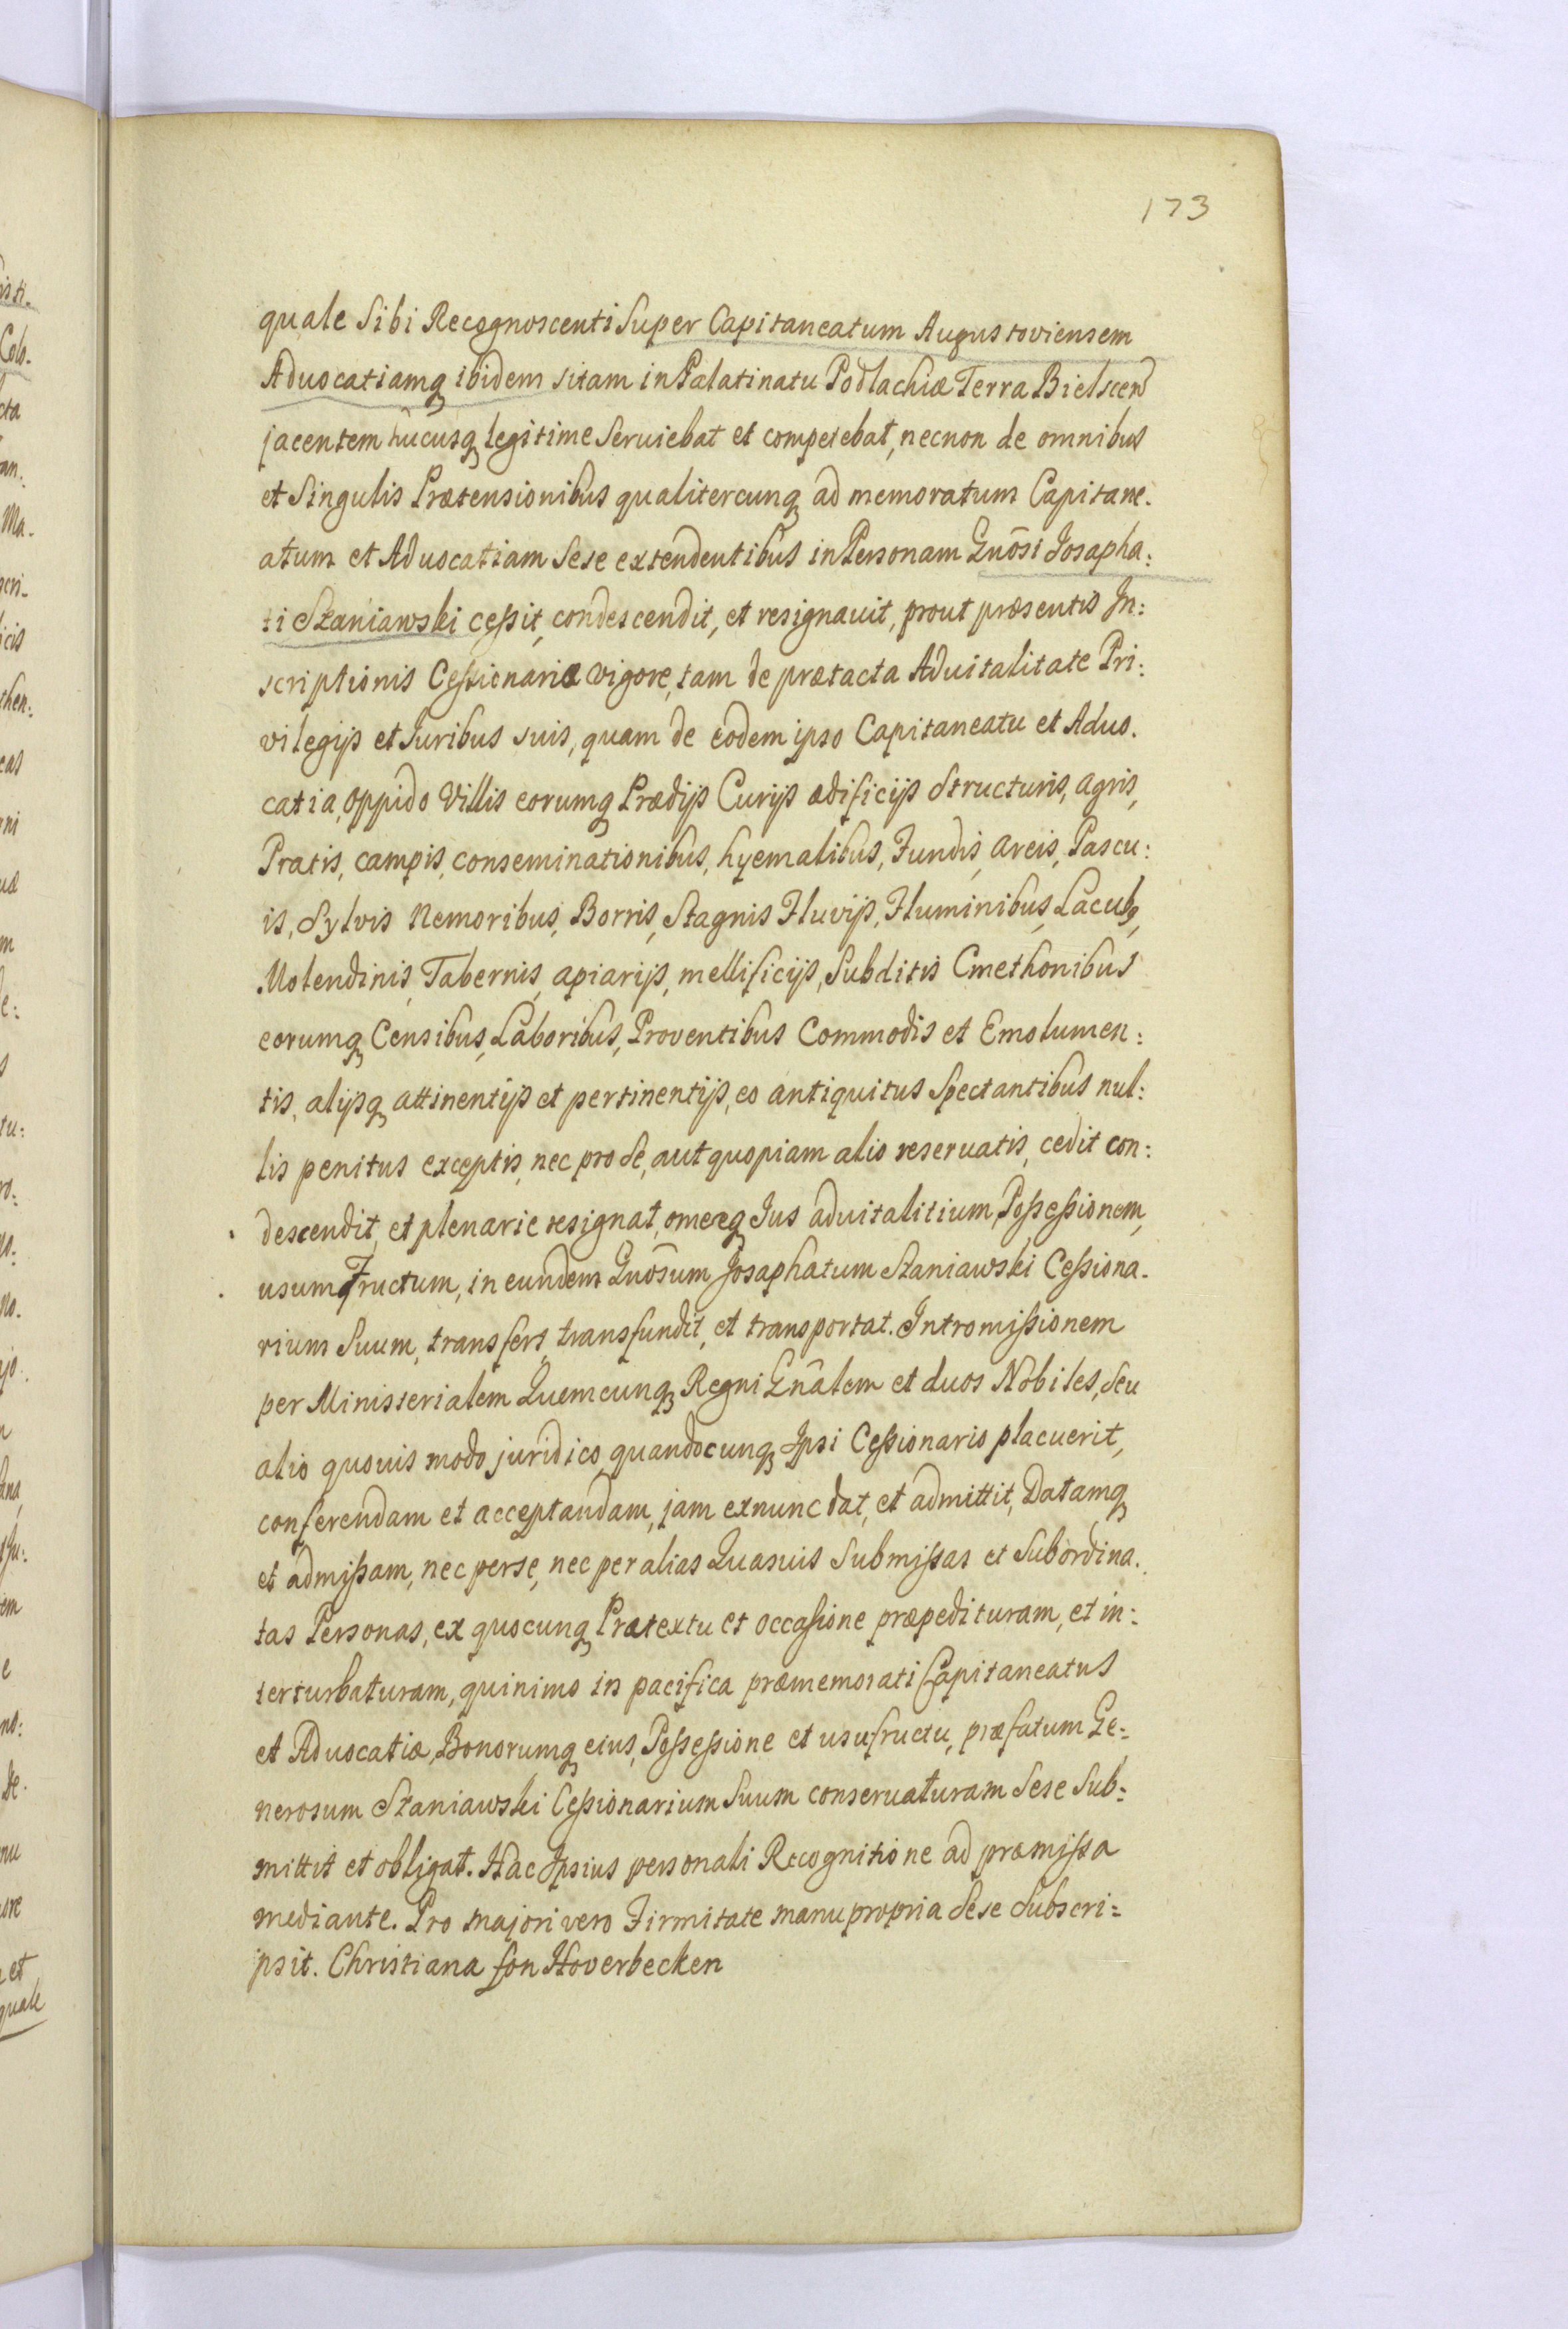 173
quale Sibi Recognoscenti Super Capitaneatum Augustoviensem
Aduocatiamq ibidem sitam in Palatinatu Podlachiæ Terra Bielscen
jacentem hucusq legitime Seruiebat et competebat, necnon de omnibus
et Singulis Prætensionibus qualitercunq ad memoratum Capitane.
atum et Aduocatiam Sese extendentibus in Personam Gnōsi Josapha:
ti Staniawski cessit, condescendit, et resignauit, prout præsentis In:
scriptionis Cessionariæ vigore, tam de prætacta Aduitalitate Pri:
vilegijs et Juribus suis, quam de eodem ipso Capitaneatu et Aduo.
catia, Oppido Villis eorumq Prædijs Curijs ædificijs Structuris, agris,
Pratis, campis, conseminationibus, hyemalibus, Fundis, areis, Pascu:
is, Sylvis Nemoribus, Borris, Stagnis Fluvijs, Fluminibus, Lacubq,
Molendinis, Tabernis, apiarijs, mellificijs, Subditis Cmethonibus
eorumq Censibus, Laboribus, Proventibus Commodis et Emolumen:
tis, alijsq attinentijs et pertinentijs, eo antiquitus Spectantibus nul:
lis penitus exceptis, nec pro Se, aut quopiam alio reseruatis, cedit con:
descendit, et plenarie resignat, omeq Jus aduitalitium, Possessionem,
usumfructum, in eundem Gnōsum Josaphatum Staniawski Cessiona.
rium Suum, transfert, transfundit, et transportat. Intromissionem
per Ministerialem Quemcunq Regni Gnālem et duos Nobiles, Seu
alio quouis modo juridico, quandocunq Ipsi Cessionario placuerit,
conferendam et acceptandam, jam exnunc dat, et admittit, Datamq
et admissam, nec perse, nec per alias Quasuis Submissas et Subordina.
tas Personas, ex quocunq Prætextu et occasione præpedituram, et in:
terturbaturam, quinimo in pacifica præmemorati Capitaneatus
et Aduocatiæ, Bonorumq eius, Possessione et usufructu, præfatum Ge:
nerosum Staniawski Cessionarium Suum conseruaturam Sese Sub:
mittit et obligat. Hac Ipsius personali Recognitione ad præmissa
mediante. Pro majori vero Firmitate manu propria Sese Subscri:
psit. Christiana fon Hoverbecken